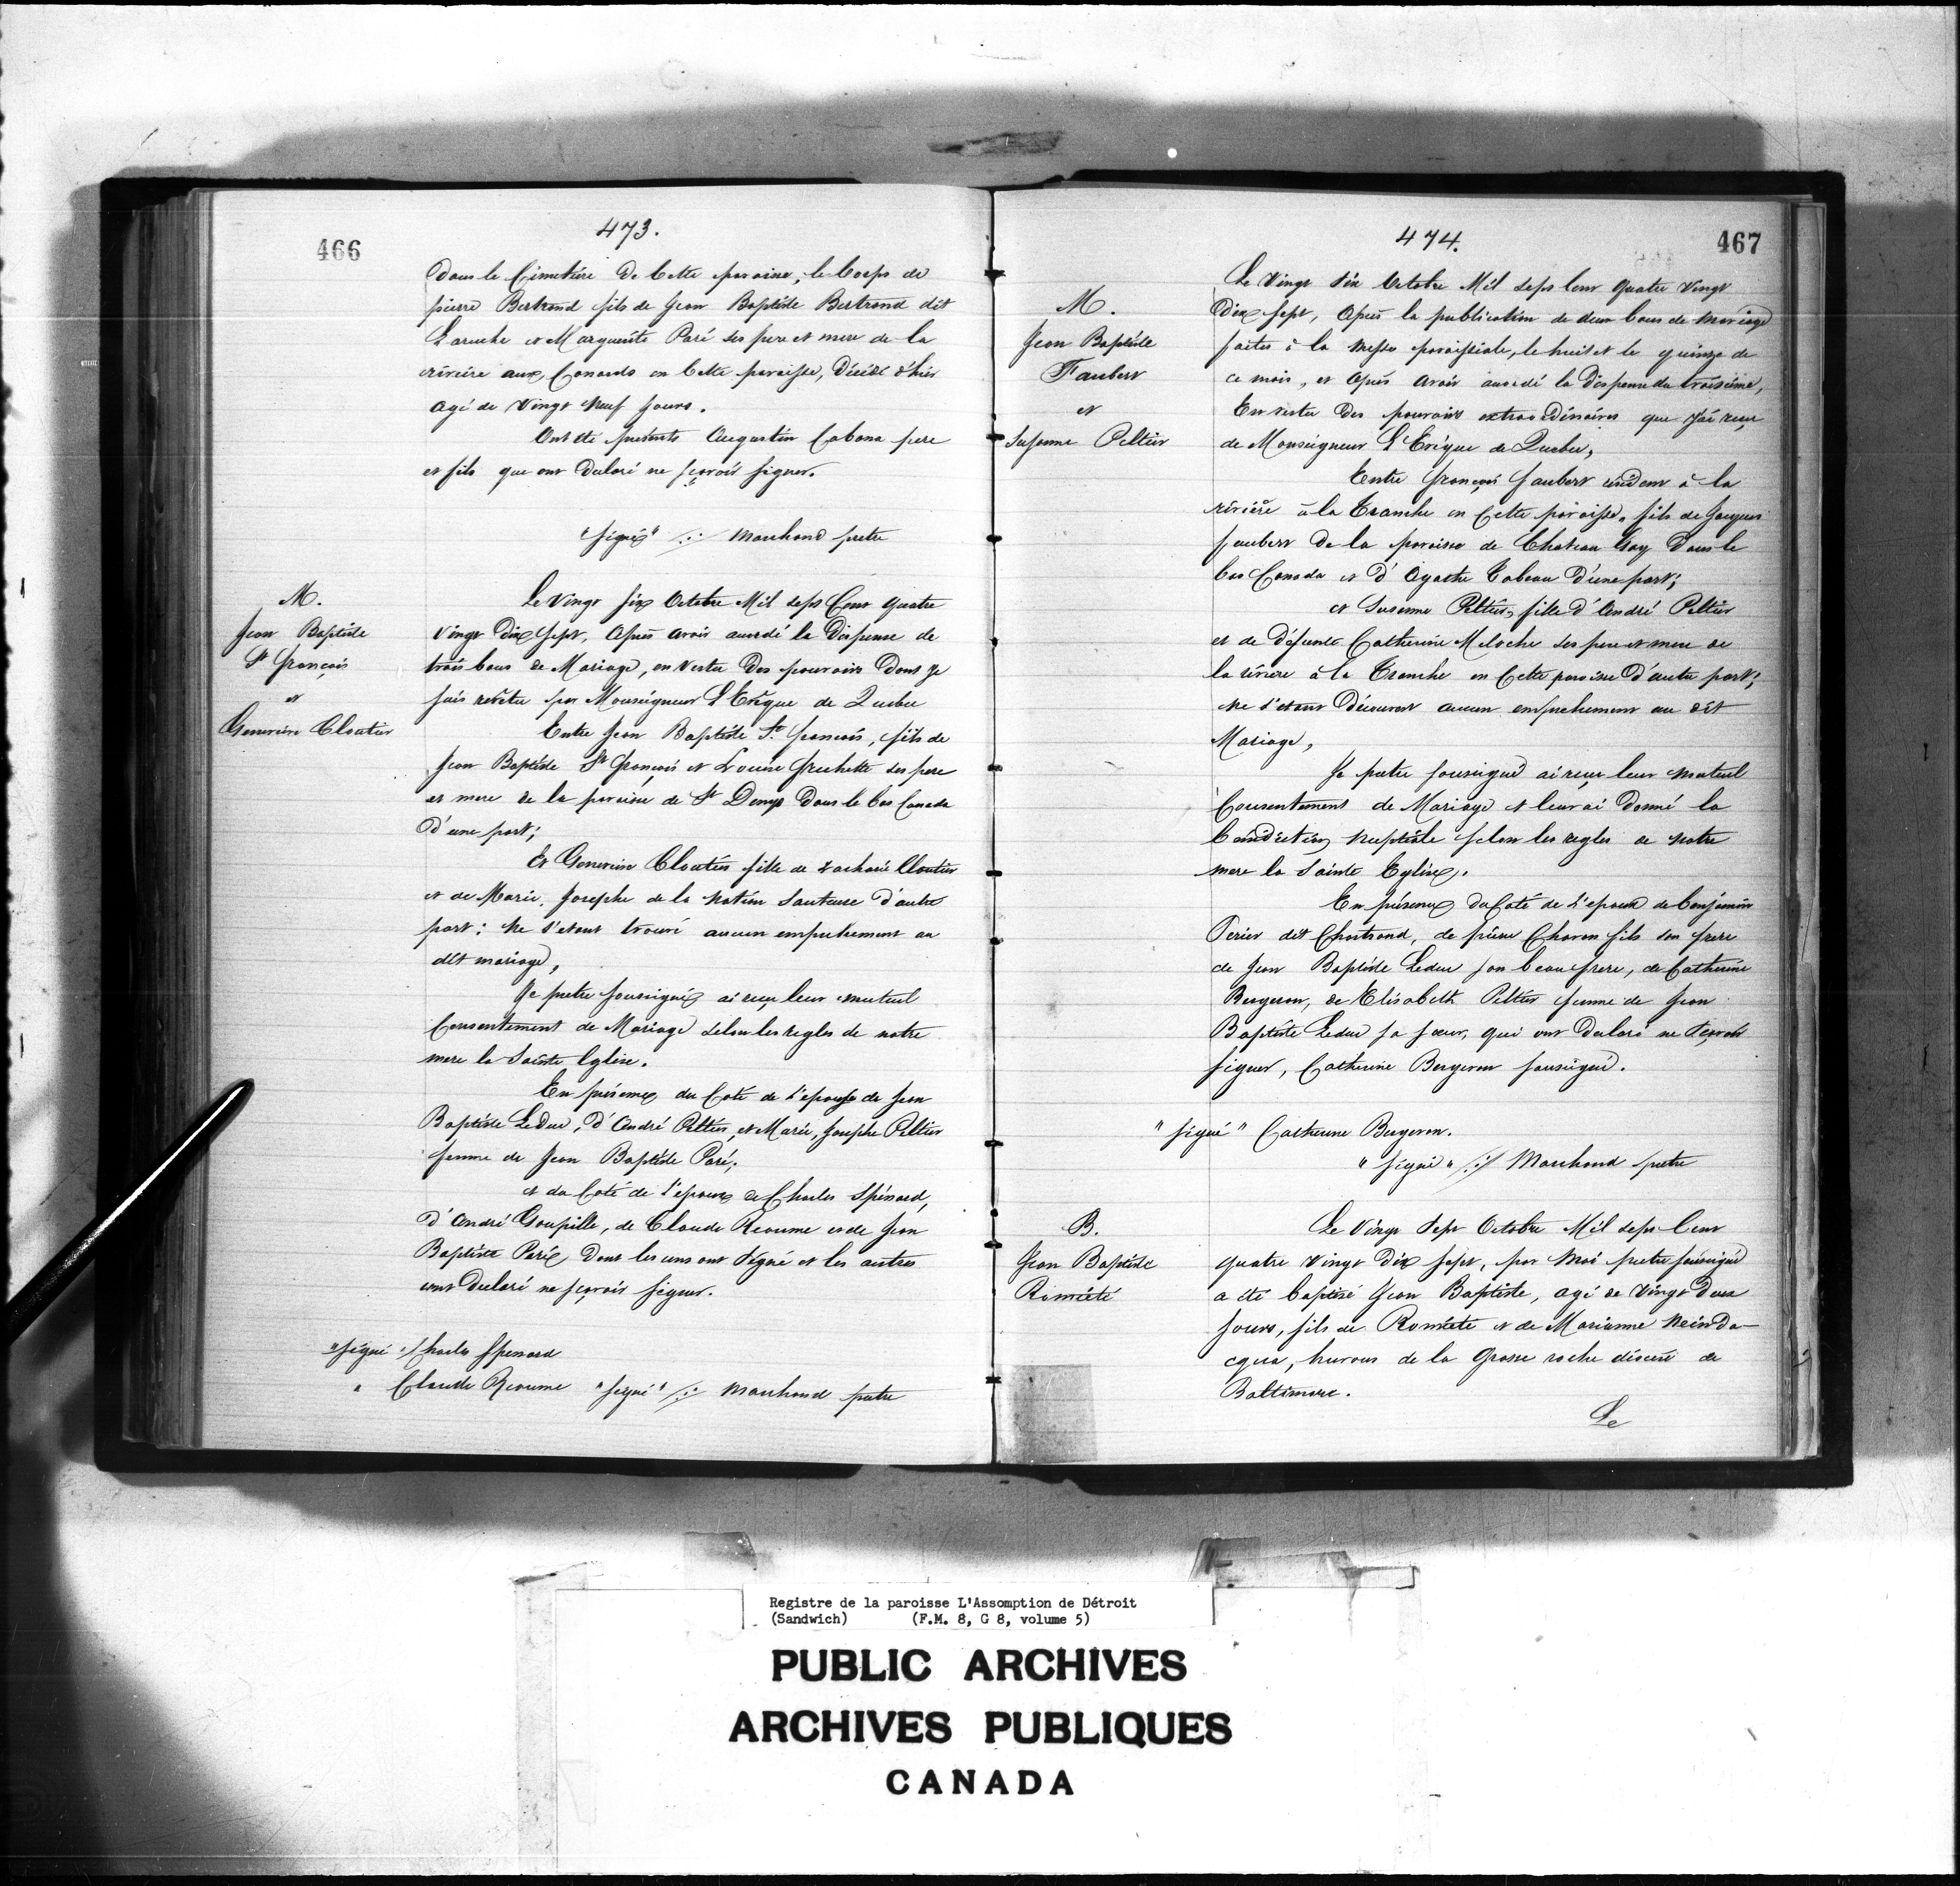 466
473.
Dans le Cimetière De Cette paroisse, le Corps de
pierre Bertrand fils de Jean Baptiste Bertrand dit
Laruche et Marguerite Paré ses pere et mere de la
rivière aux Canards en Cette paroisse, décédé d'hier
agé de Vingt Neuf Jours.
Ont été présents Augustin Cabana pere
et fils que ont Déclaré ne sçavoir signer.
"signé" Marchand pretre
M.
Jean Baptiste
St François
et
Genevieve Cloutier
Le Vingt six Octobre Mil Sept Cent quatre
Vingt Dix Sept, Après avoir accordé la Dispense de
trois bans de Mariage, en Vertu Des pouvoirs Dont Je
suis revêtu par Monseigneur L'Evêque de Quebec
Entre Jean Baptiste St. François, fils de
Jean Baptiste St François et Louise Frechette ses pere
et mere de la paroisse de St Denys Dans le bas Canada
d'une part;
Et Genevieve Cloutier fille de Zacharie Cloutier
et de Marie Josephe de la Nation Sauteuse d'autre
part: Ne s'etant trouvé aucun empechement au
dit mariage,
Je pretre soussigné ai reçu leur mutuel
Consentement de Mariage selon les regles de notre
mere la Sainte Eglise.
En présence du Coté de l'epouse de Jean
Baptiste LeDuc, d'André Peltier, et Marie Josephe Peltier
femme de Jean Baptiste Paré,
et du Coté de l'epoux de Charles Spénard,
d'André Goupille, de Claude Reaume et de Jean
Baptiste Paré Dont les uns ont Signé et les autres
ont Declaré ne sçavoir signer.
"signé" Charles Spenard
" Claude Reaume "signé" Marchand pretre
474.
467
M.
Jean Baptiste
Faubert
et
Susanne Peltier
Le Vingt Six Octobre Mil Sept Cent Quatre Vingt
Dix Sept, Après la publication de deux bans de mariage
faites à la Messe paroissiale, le huit et le quinze de
ce mois, et Après avoir accordé la dispense du troisième,
En vertu Des pouvoirs extraordinaires que J'ai reçu
de Monseigneur L'Evêque de Quebec,
Entre François Faubert résident à la
rivière à la Tranche en Cette paroisse, fils de Jacques
faubert De la paroisse de Chateau Gay Dans le
bas Canada et d'Agathe Tabeau D'une part;
et Susanne Peltier, fille d'André Peltier
et de Défunte Catherine Meloche ses pere et mere de
la rivière à la Tranche en Cette paroisse D'autre part;
Ne s'etant Découvert aucun empechement au dit
Mariage,
Je pretre soussigné ai reçu leur mutuel
Consentement de Mariage et leur ai Donné la
bénédiction Nuptiale selon les regles de notre
mere la Sainte Eglise.
En présence du Coté de l'epoux de benjamin
Perier dit Chartrand, de pierre Charon fils son frere
de Jean Baptiste Leduc son beau frere, de Catherine
Bergeron, de Elisabeth Peltier femme de Jean
Baptiste Leduc sa sœur, qui ont Declaré ne sçavoir
signer, Catherine Bergeron soussigné.
"signé" Catherine Bergeron.
"signé" Marchand pretre
B.
Jean Baptiste
Romiété
Le Vingt Sept Octobre Mil Sept Cent
quatre Vingt Dix Sept, par Moi pretre soussigné
a été baptisé Jean Baptiste, agé de Vingt Deux
Jours, fils de Romiété et de Marianne Neinda-
cqua, hurons de la Grosse roche
Baltimore.
Le
Registre de la paroisse L'Assomption de Détroit
(Sandwich) (F.M. 8, G 8, volume 5)
PUBLIC ARCHIVES
ARCHIVES PUBLIQUES
CANADA